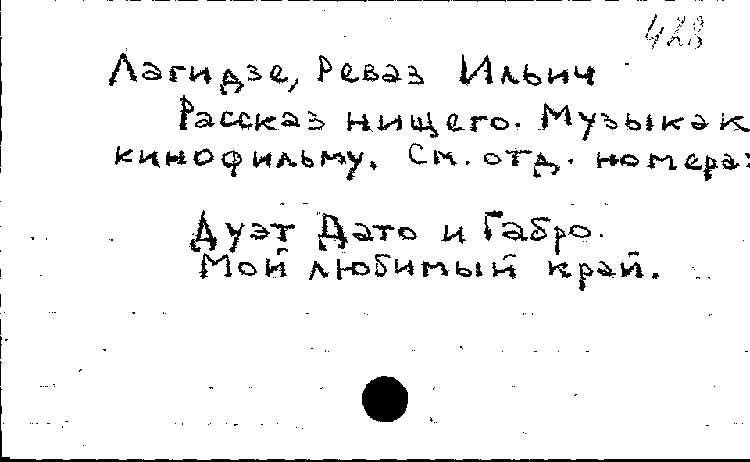 428
Лагидзе, Реваз Ильич
Рассказ нищего. Музыка к
кинофильму. См. отд. номера:
Дуэт Дато и Габро.
Мой любимый край.